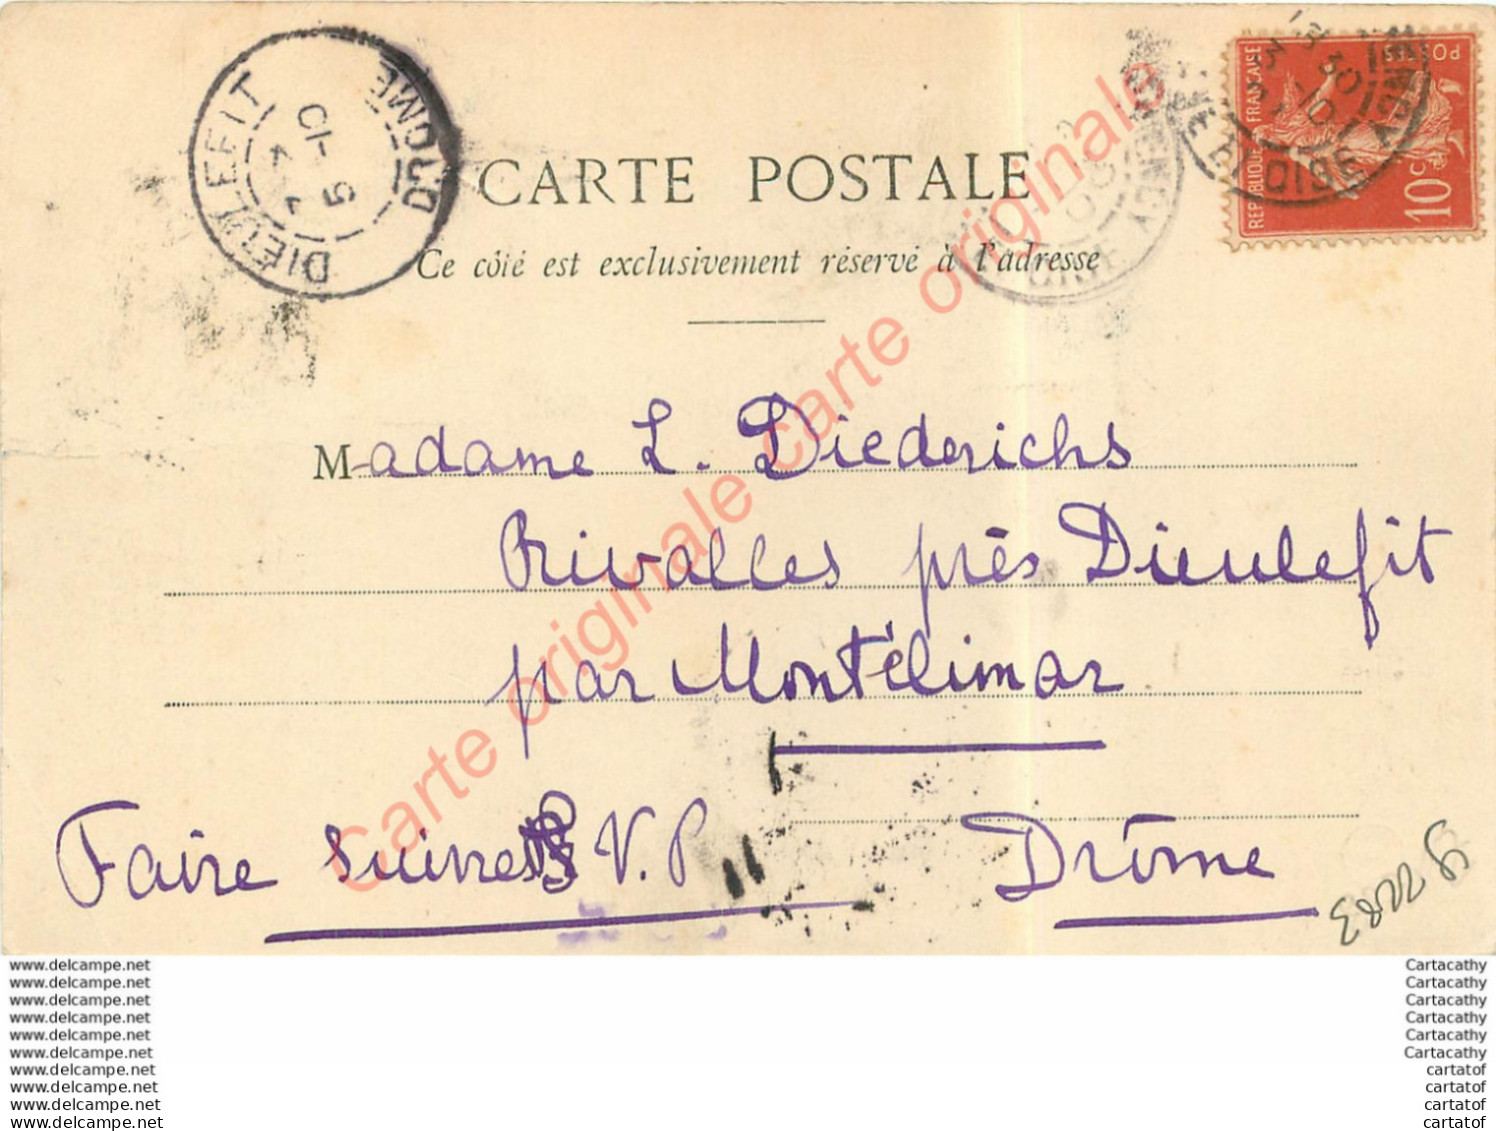 DIEULEFIT
DRÔME
5 -10
CARTE POSTALE
Ce côté est exclusivement réservé à l'adresse
RÉPUBLIQUE FRANÇAISE
POSTES
10c
Madame L. Diederichs
Rivalles près Dieulefit
par Montélimar
Faire suivre S. V. P.
Drôme
Carte originale carte originale
Carte originale carte originale
www.delcampe.net
www.delcampe.net
www.delcampe.net
www.delcampe.net
www.delcampe.net
www.delcampe.net
www.delcampe.net
www.delcampe.net
www.delcampe.net
www.delcampe.net
Cartacathy
Cartacathy
Cartacathy
Cartacathy
Cartacathy
Cartacathy
cartatof
cartatof
cartatof
cartatof